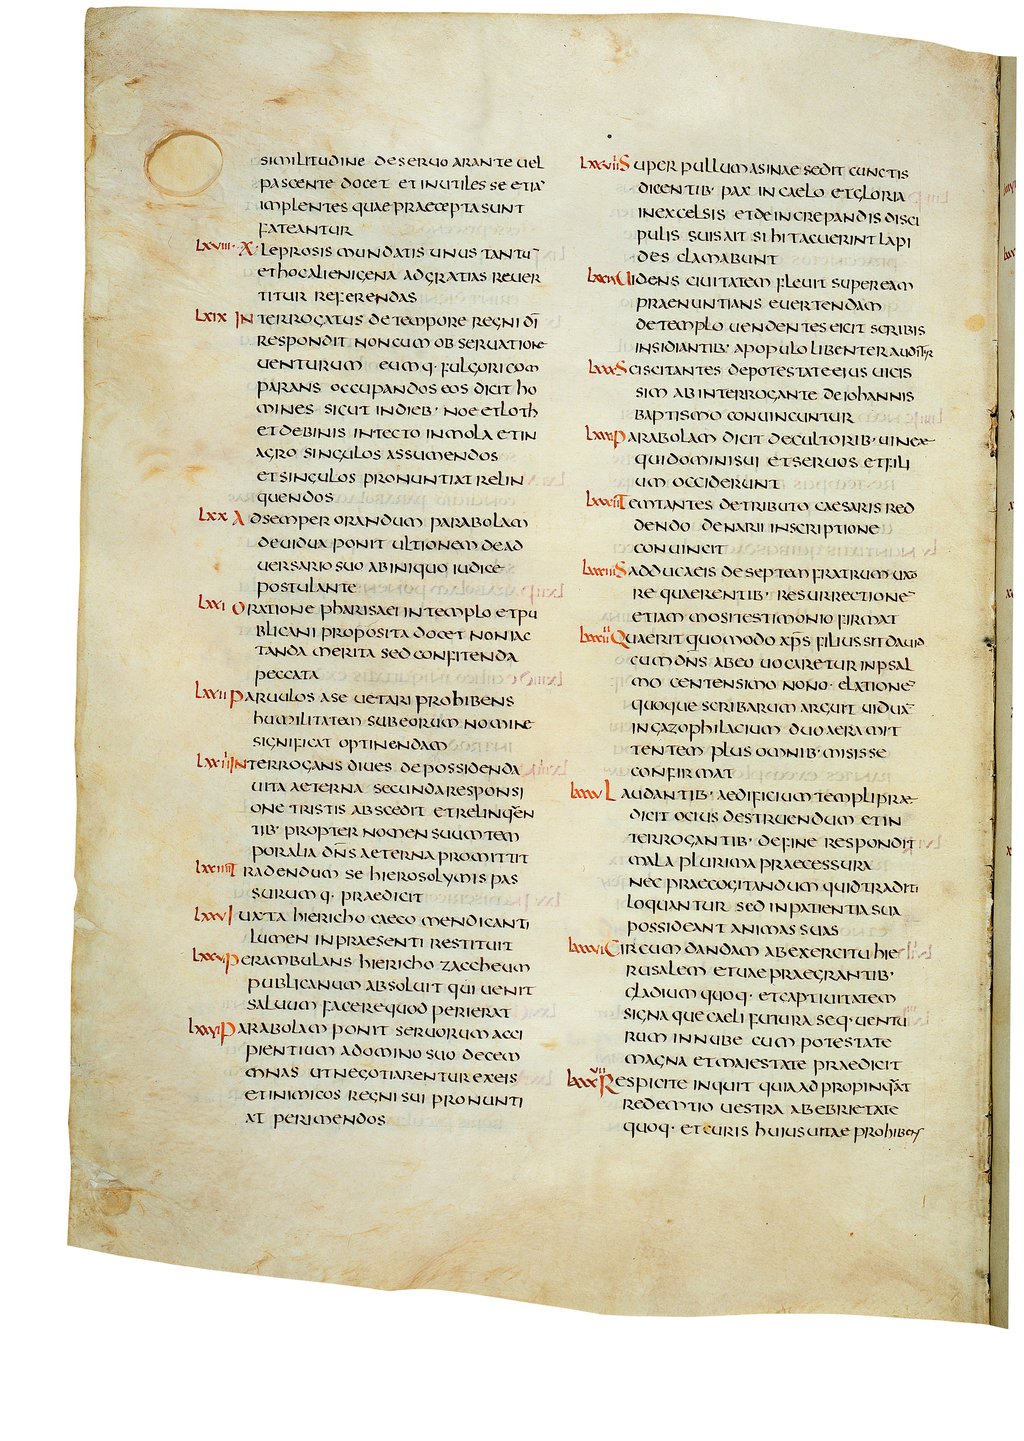 similitudine de seruo arante uel
pascente docet et inutiles se etiā
implentes quae praecepta sunt
fateantur
lxviii · X · leprosis mundatis unus tantū
et hoc alienigena ad gratias reuer
titur referendas
lxix Interrogatus de tempore regni dī
respondit non cum obseruatione
uenturum eumq· fulgori com
parans occupandos eos dicit ho
mines sicut in dieb· noe et loth
et de binis in tecto in mola et in
agro singulos assumendos
et singulos pronuntiat relin
quendos
lxx Ad semper orandum parabolam
de uidua ponit ultionem de ad
uersario suo ab iniquo iudice
postulante
lxxi Oratione pharisaei in templo et pu
blicani proposita docet non iac
tanda merita sed confitenda
peccata
lxxii Paruulos a se uetari prohibens
humilitatem sub eorum nomine
significat optinendam
lxxiii Interrogans diues de possidenda
uita aeterna secunda responsi
one tristis abscedit et relinqen
tib· propter nomen suum tem
poralia dn̄s aeterna promittit
lxxiiii Tradendum se hierosolymis pas
surumq· praedicit
lxxv Iuxta hiericho caeco mendicanti
lumen in praesenti restituit
lxxvi Perambulans hiericho zaccheum
publicanum absoluit qui uenit
saluum facere quod perierat
lxxvii Parabolam ponit seruorum acci
pientium a domino suo decem
mnas ut negotiarentur ex eis
et inimicos regni sui pronunti
at perimendos
lxxviii Super pullum asinae sedit cunctis
dicentib· pax in caelo et gloria
in excelsis et de increpandis disci
pulis suis ait si hi tacuerint lapi
des clamabunt
lxxix Uidens ciuitatem fleuit super eam
praenuntians euertendam
de templo uendentes eicit scribis
insidiantib· a populo libenter auditur
lxxx Sciscitantes de potestate eius uicis
sim ab interrogante de iohannis
baptismo conuincuntur
lxxxi Parabolam dicit de cultorib· uineae
qui domini sui et seruos et fili
um occiderunt
lxxxii Temtantes de tributo caesaris red
dendo denarii inscriptione
conuincit
lxxxiii Sadducaeis de septem fratrum uxo
re quaerentib· resurrectionē
etiam mosi testimonio firmat
lxxxiiii Quaerit quomodo xp̄s filius sit dauid
cum dn̄s ab eo uocaretur in psal
mo centensimo nono· elationē
quoque scribarum arguit uiduā
in gazophilacium duo aera mit
tentem plus omnib· misisse
confirmat
lxxxv Laudantib· aedificium templi prae
dicit ocius destruendum et in
terrogantib· de fine respondit
mala plurima praecessura
nec praecogitandum quid traditi
loquantur sed in patientia sua
possideant animas suas
lxxxvi Circumdandam ab exercitu hie
rusalem et uae praegnantib·
gladium quoq· et captiuitatem
signa que caeli futura seq· uentū
rum in nube cum potestate
magna et maiestate praedicit
lxxxvii Respicite inquit quia adpropinqat
redemtio uestra ab ebrietate
quoq· et curis huius uitae prohibens